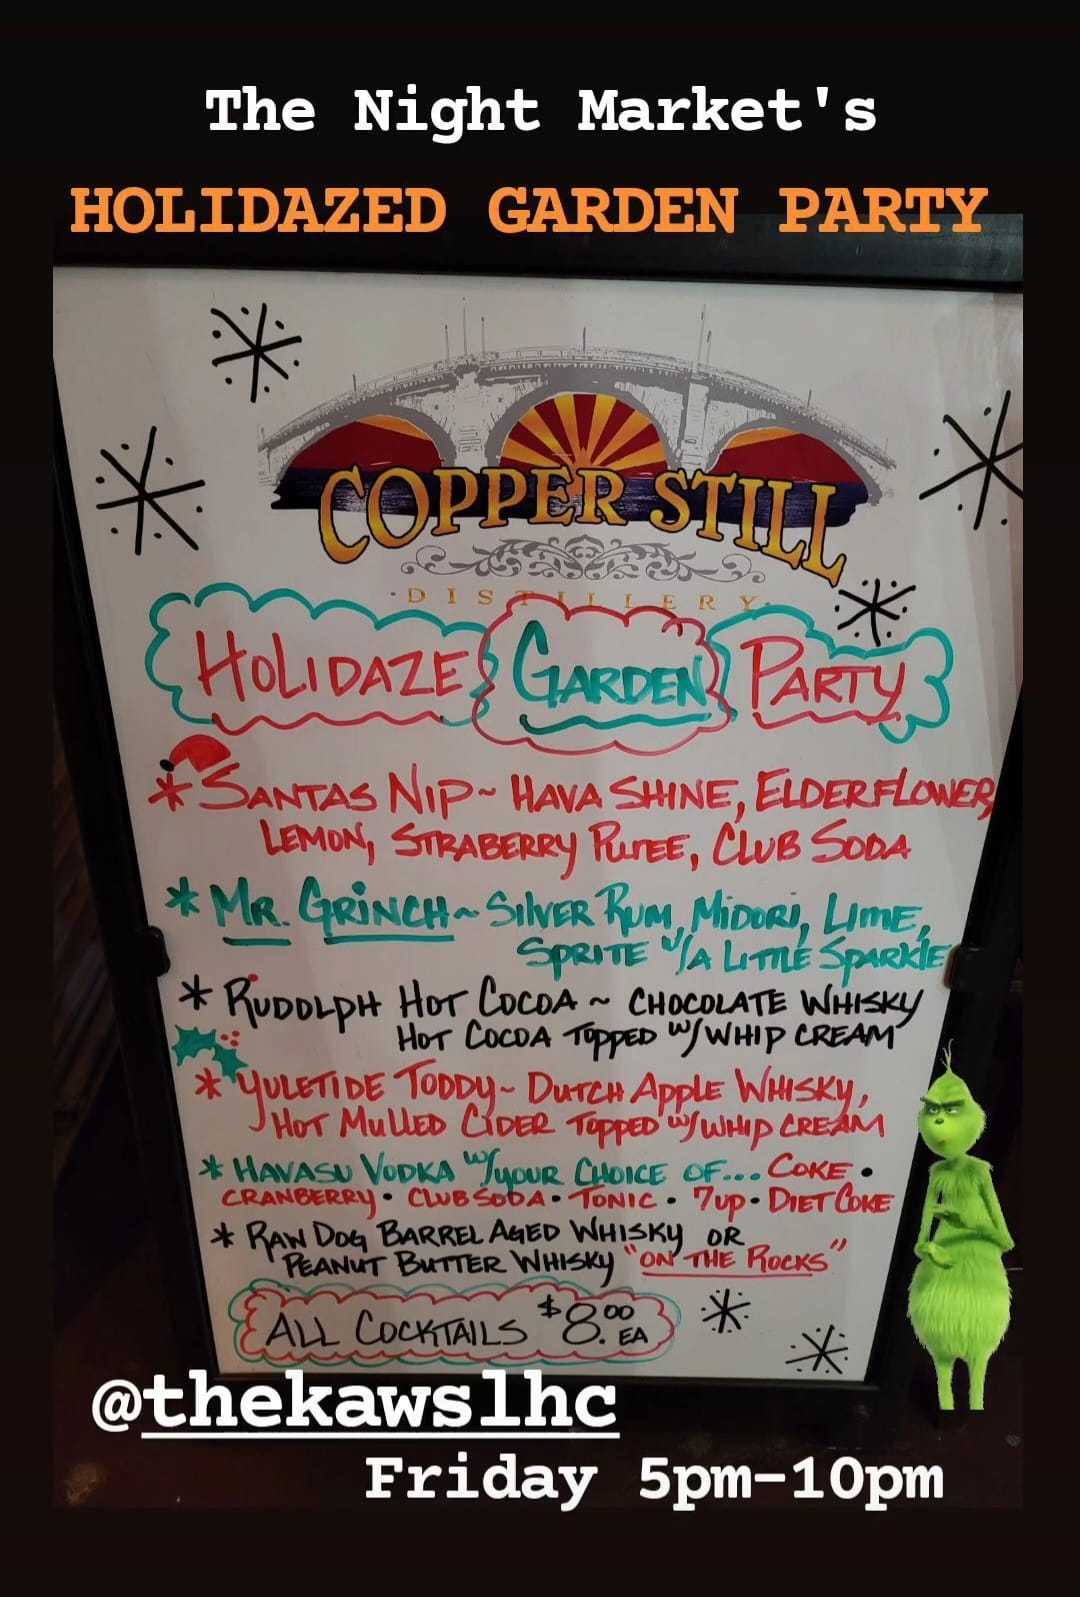 The Night Market's
HOLIDAZED GARDEN PARTY
COPPER STILL
· DISTILLERY ·
HOLIDAZE GARDEN PARTY
* SANTAS NIP~ HAVA SHINE, ELDERFLOWER,
LEMON, STRABERRY PUREE, CLUB SODA
* MR. GRINCH~ SILVER RUM, MIDORI, LIME,
SPRITE W/A LITTLE SPARKLE
* RUDOLPH HOT COCOA ~ CHOCOLATE WHISKY
HOT COCOA TOPPED W/WHIP CREAM
* YULETIDE TODDY~ DUTCH APPLE WHISKY,
HOT MULLED CIDER TOPPED W/WHIP CREAM
* HAVASU VODKA W/YOUR CHOICE OF... COKE •
CRANBERRY • CLUB SODA • TONIC • 7UP • DIET COKE
* RAW DOG BARREL AGED WHISKY OR
PEANUT BUTTER WHISKY "ON THE ROCKS"
ALL COCKTAILS $8.00 EA
@thekawslhc
Friday 5pm-10pm